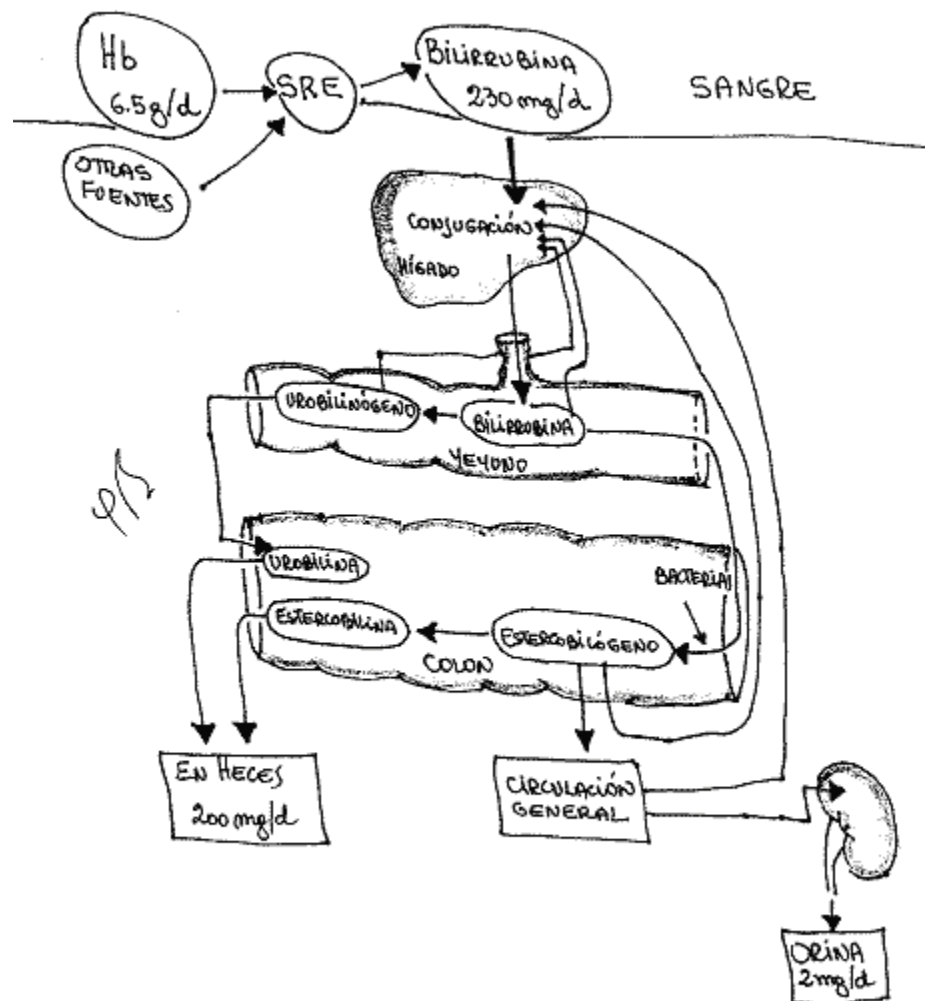 Hb
6.5g/d
SRE
BILIRRUBINA
230 mg/d
SANGRE
OTRAS
FUENTES
CONJUGACIÓN
HÍGADO
UROBILINÓGENO
BILIRRUBINA
YEYUNO
UROBILINA
BACTERIAS
ESTERCOBILINA
ESTERCOBILÓGENO
COLON
EN HECES
200 mg/d
CIRCULACIÓN
GENERAL
ORINA
2mg/d